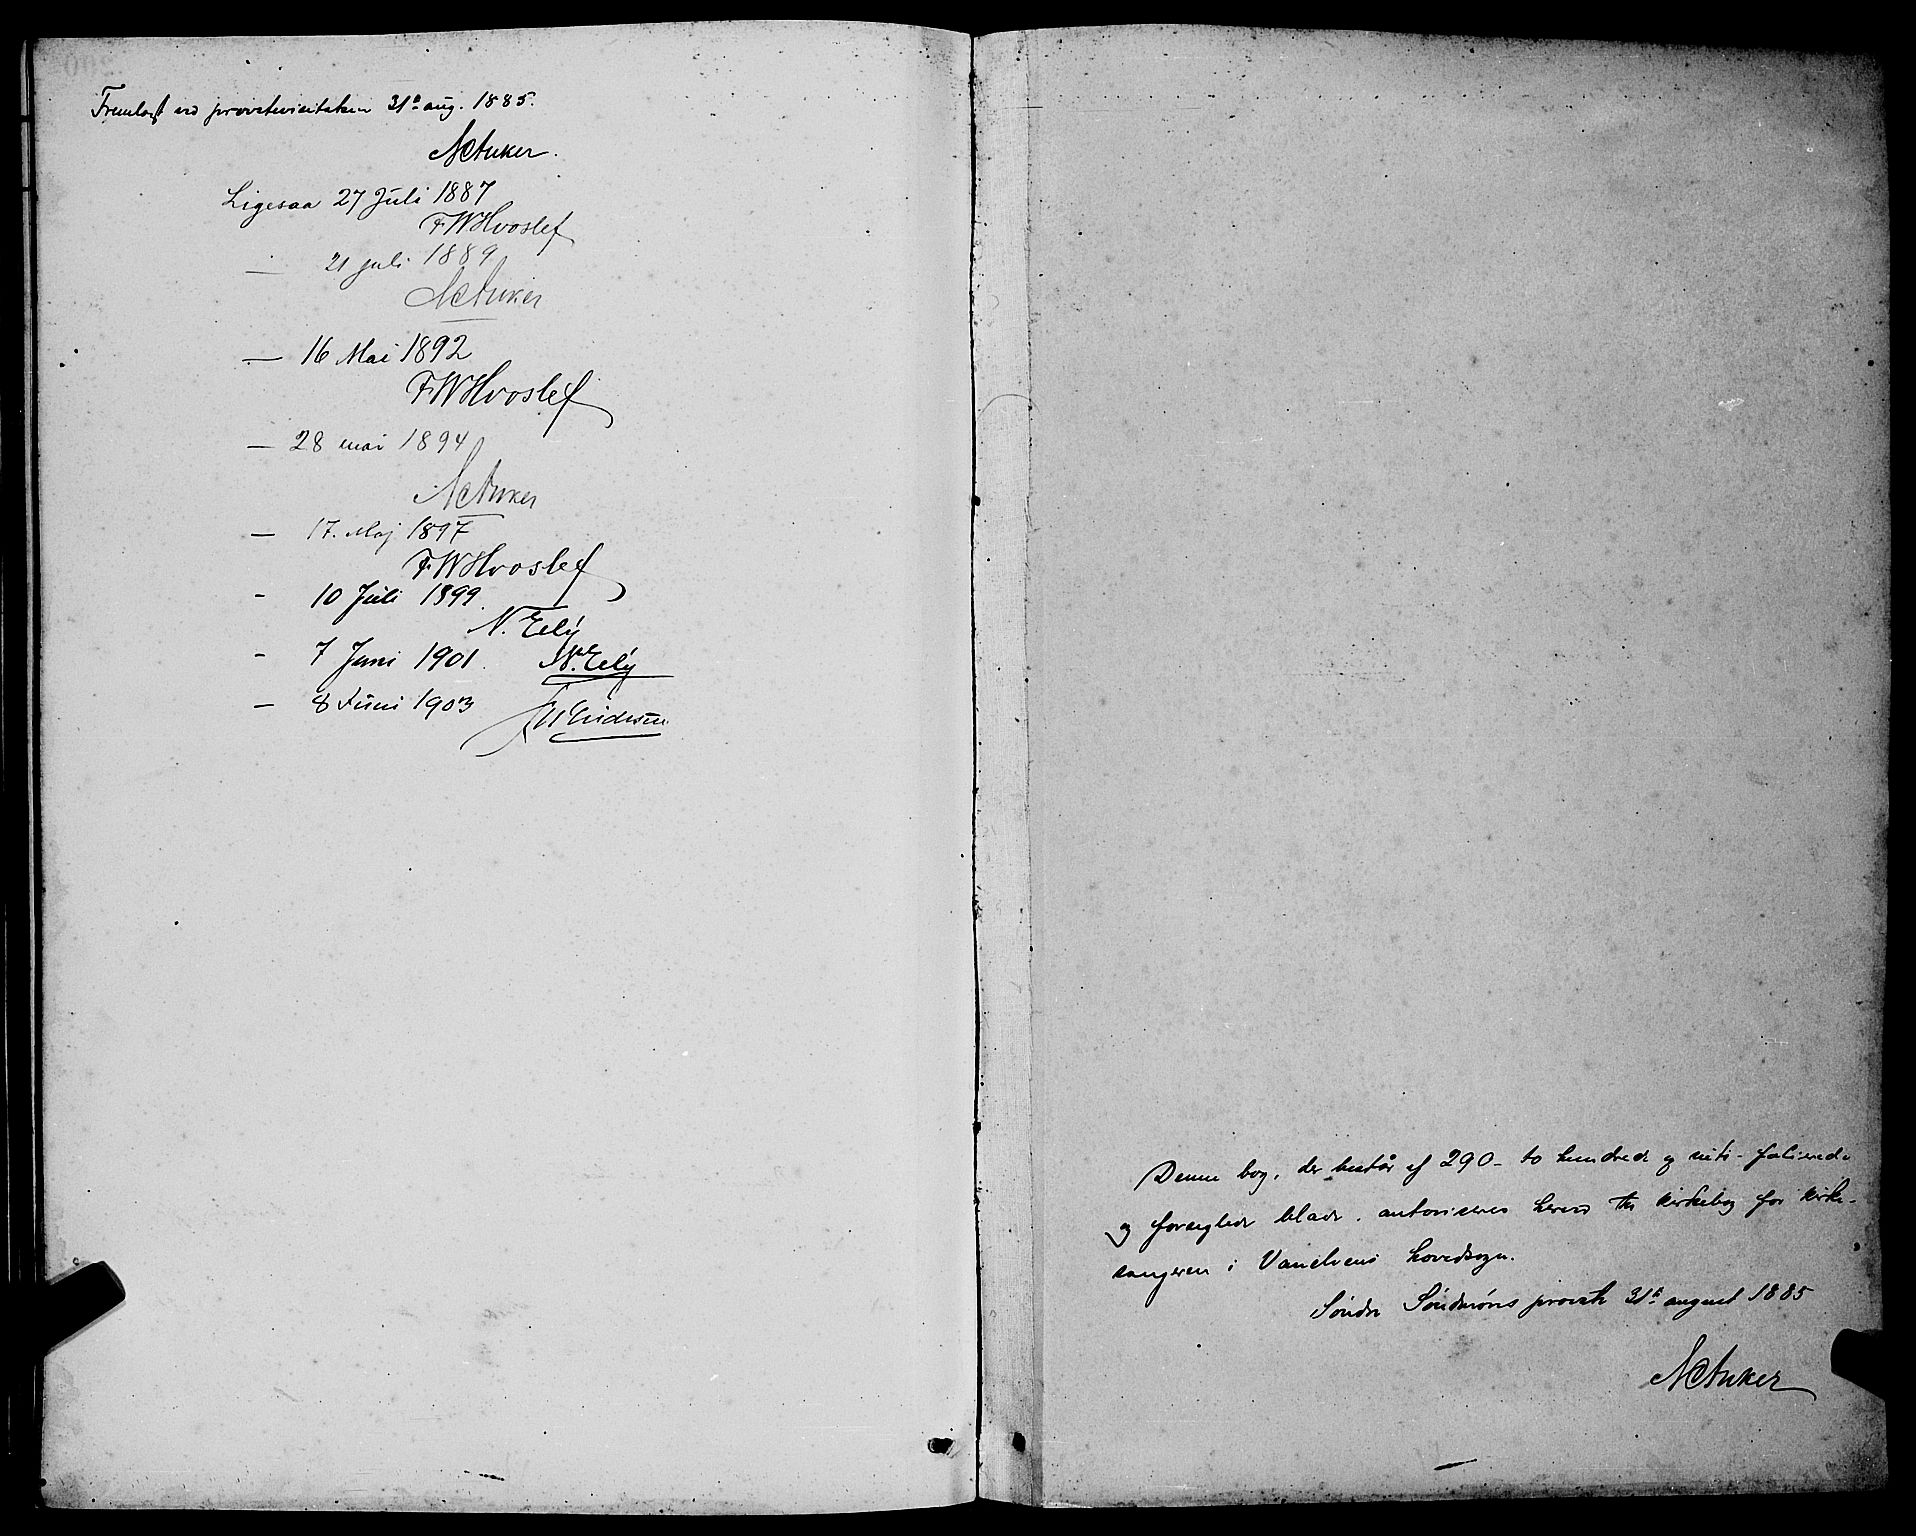 Fremlagt ved provstevisitatsen 31te aug. 1885.
NAnker.
Ligesaa 27 Juli 1887
FWHvoslef
— 21 juli 1889
NAnker
— 16 Mai 1892
FWHvoslef
— 28 mai 1894
NAnker
— 17. Maj 1897
FWHvoslef
- 10 Juli 1899.
- 7 Juni 1901.
— 8 Juni 1903
Denne bog, der består af 290 - to hundrede og niti - folierede
og forseglede blade, autoriseres herved til kirkebog for kirke-
sangeren i Vanelvens hovedsogn.
Søndre Søndmørs provsti 31te august 1885
NAnker